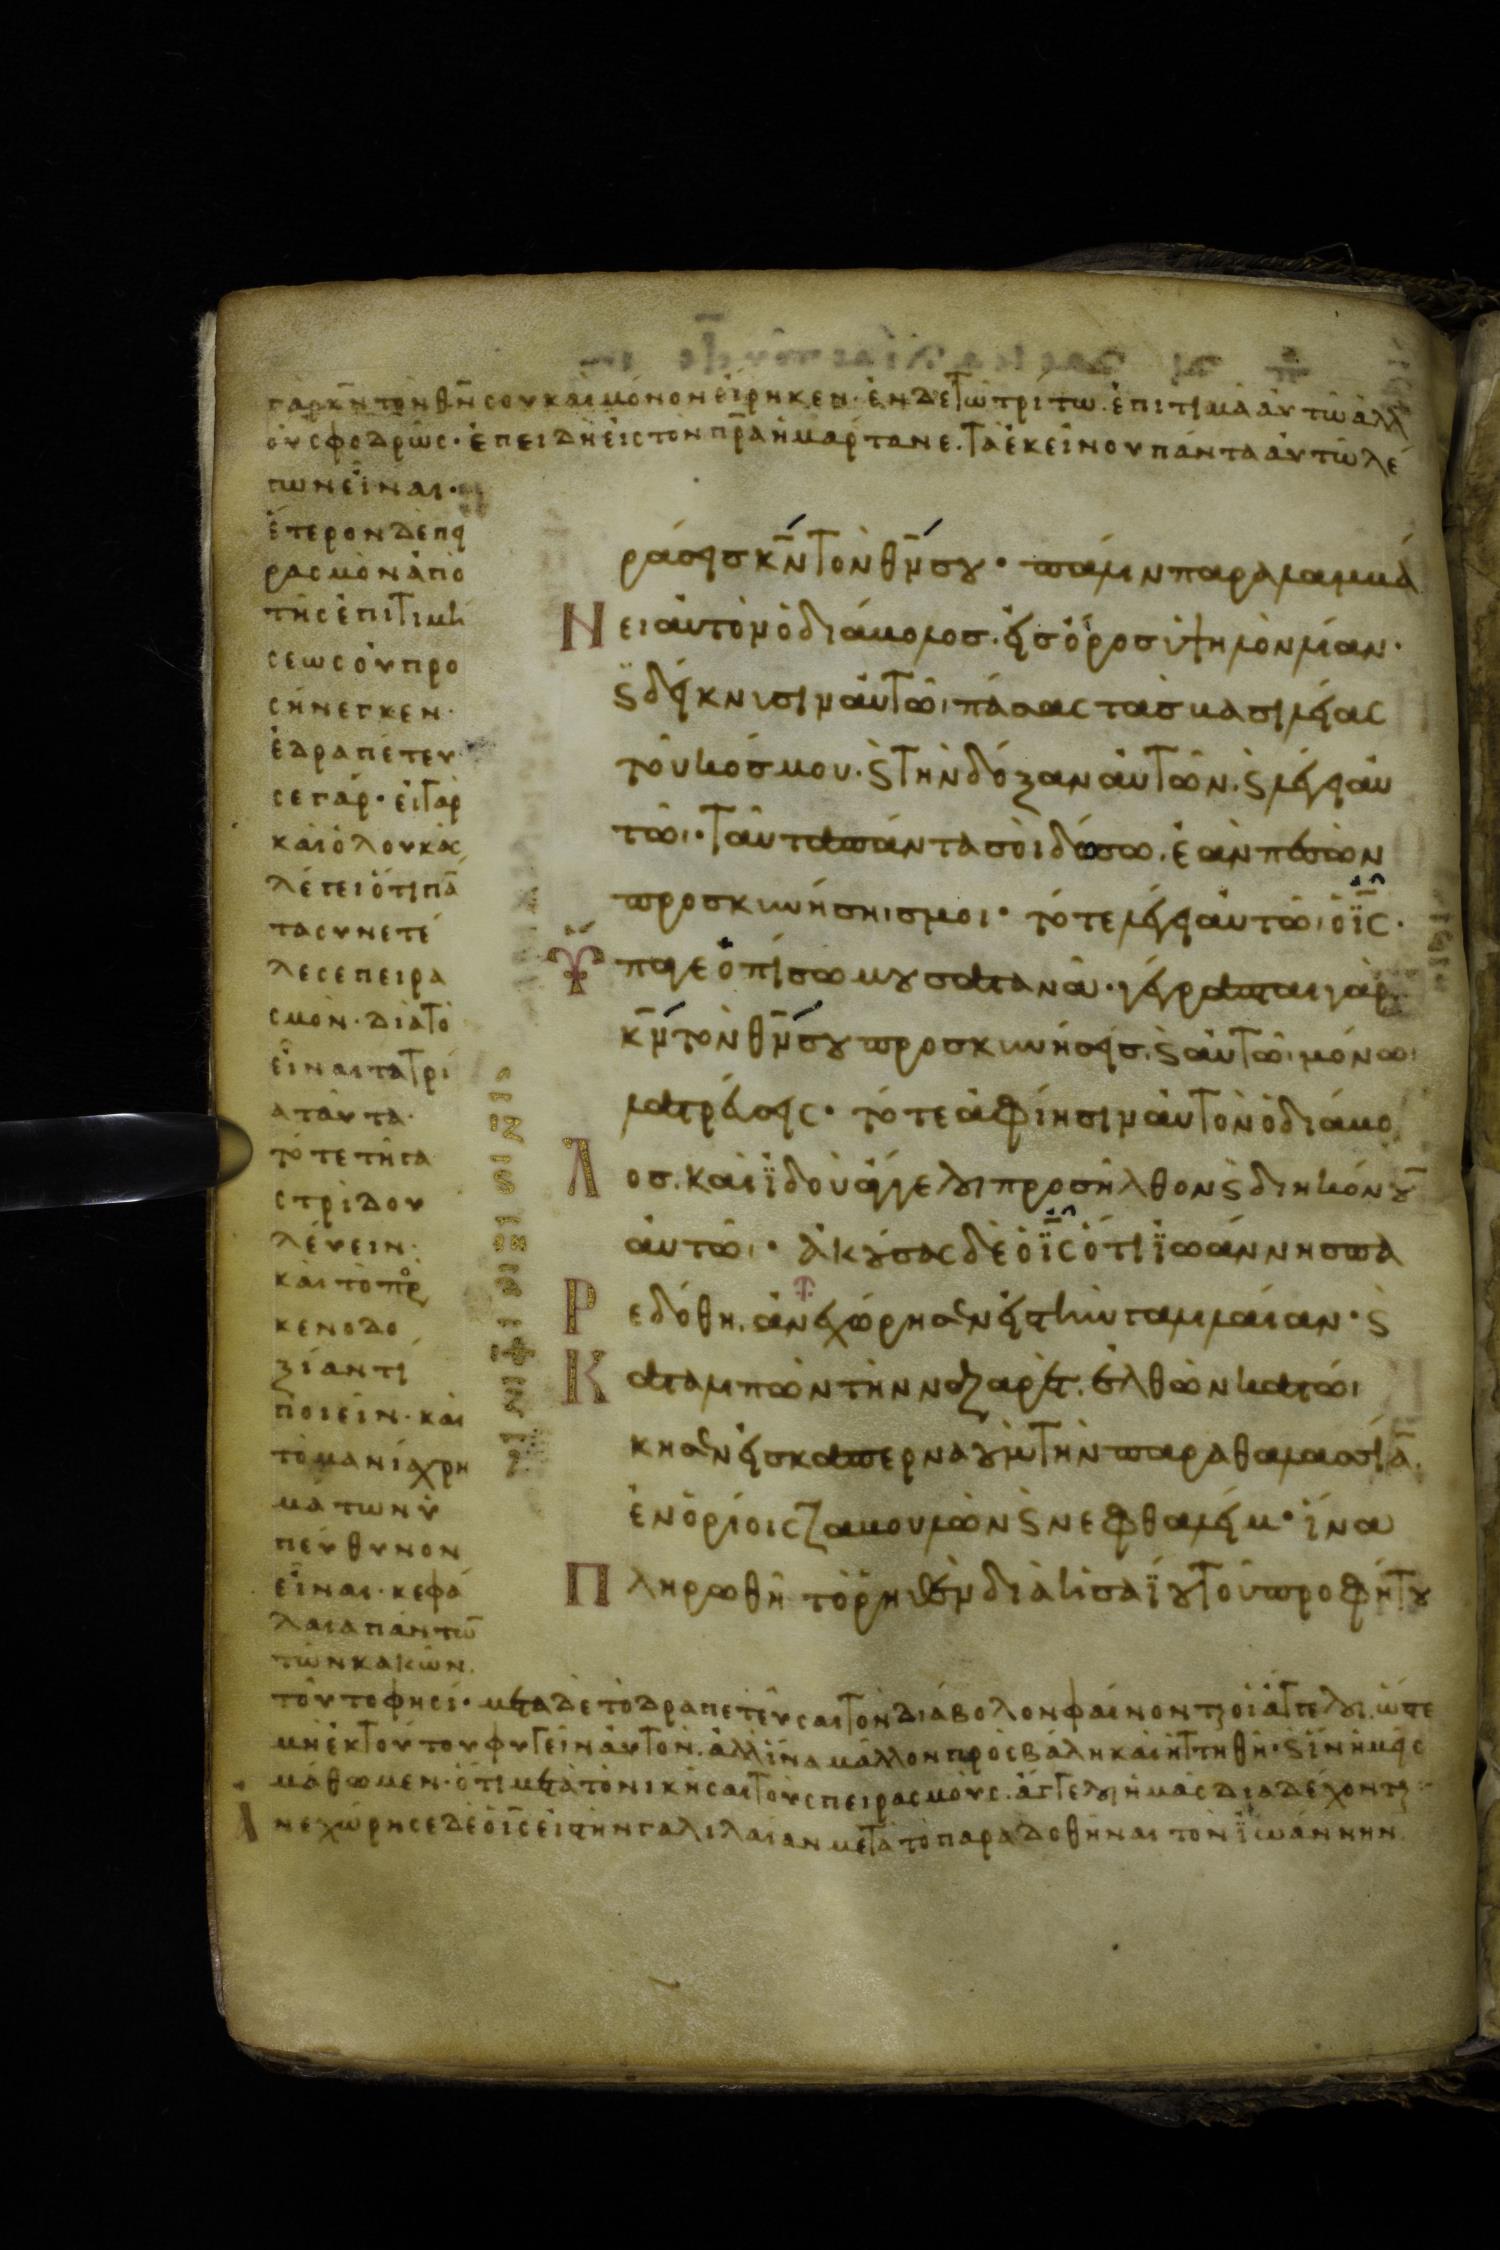 γὰρ κ̅ν̅ τὸν θ̅ν̅ σου καὶ μόνον εἴρηκεν· ἐν δὲ τῶ τρίτω. ἐπιτιμᾶ αὐτῶ ἀλλ
οὐ σφοδρῶς· ἐπειδὴ εἰς τὸν π̅ρ̅α ἡμάρτανε. τὰ ἐκείνου πάντα αὐτῶ λέ
γων εἶναι·
ἕτερον δὲ πει
ρασμὸν ἀπὸ
τῆς ἐπιτιμή
σεως οὐ προ
σήνεγκεν·
ἐδραπέτευ
σε γάρ· εἰ γὰρ
καὶ ὁ λουκᾶς
λέγει ὅτι πά̅
τα συνετέ
λεσε πειρα
σμὸν· διὰ τὸ
εἶναι τὰ τρί
α ταῦτα·
τό τε τῆ γα
στρὶ δου
λεύειν·
καὶ τὸ πρὸ
κενοδο
ξίαν τί
ποιεῖν· καὶ
τὸ μανία χρη
μάτων ὑ
πεύθυνον
εἶναι· κεφά
λαια πάντω̅
τῶν κακῶν.
ράσεις κ̅ν̅ τὸν θ̅ν̅ σου· πάλιν παραλαμβά
Νει αὐτὸν ὁ διάβολος. εἰς ὄρος ὑψηλὸν λίαν·
ϛ δείκνυσιν αὐτῶ πάσας τὰς βασιλείας
τοῦ κόσμου· ϛ τὴν δόξαν αὐτῶν. ϛ λέγει αὐ
τῶ· ταῦτα πάντα σοὶ δώσω. ἐὰν πεσὼν
προσκυνήσης μοι· τότε λέγει αὐτῶ ὁ ι̅ς̅·
Ὕπαγε ὀπίσω μου σατανᾶ· γέγραπται γὰρ
κ̅ν̅ τὸν θ̅ν̅ σου προσκυνήσεις. ϛ αὐτῶ μόνω
λατρεύσεις· τότε ἀφίησιν αὐτὸν ὁ διάβο
Λος. καὶ ἰδοὺ ἄγγελοι προσῆλθον ϛ διηκόνου̅
αὐτῶ· ἀκούσας δὲ ὁ ι̅ς̅ ὅτι ἰωάννης πα
Ρεδόθη. ἀνεχώρησεν εἰς τὴν γαλιλαίαν· ϛ
Καταλιπὼν τὴν ναζαρέτ. ἐλθὼν κατώ
κησεν εἰς καπερναοὺμ τὴν παραθαλασσία̅.
ἐν ὁρίοις ζαβουλὼν ϛ νεφθαλείμ· ἵνα
Πληρωθῆ τὸ ῥηθὲν διὰ ἡσαΐου τοῦ προφήτου
τοῦτο φησί· μετὰ δὲ τὸ δραπετεῦσαι τὸν διάβολον φαίνονται οἱ ἄγγελοι, ὥστε
μὴ ἐκ τούτου φυγεῖν αὐτὸν. ἀλλ ἵνα μᾶλλον προσβάλη καὶ ἡττηθῆ· ϛ ἵν ἡμεῖς
μάθωμεν· ὅτι μετὰ τὸ νικῆσαι τοὺς πειρασμούς. ἄγγελοι ἡμᾶς διαδέχονται
Ἀνεχώρησε δὲ ὁ ι̅ς̅ εἰς τὴν γαλιλαίαν μετὰ τὸ παραδοθῆναι τὸν ἰωάννην